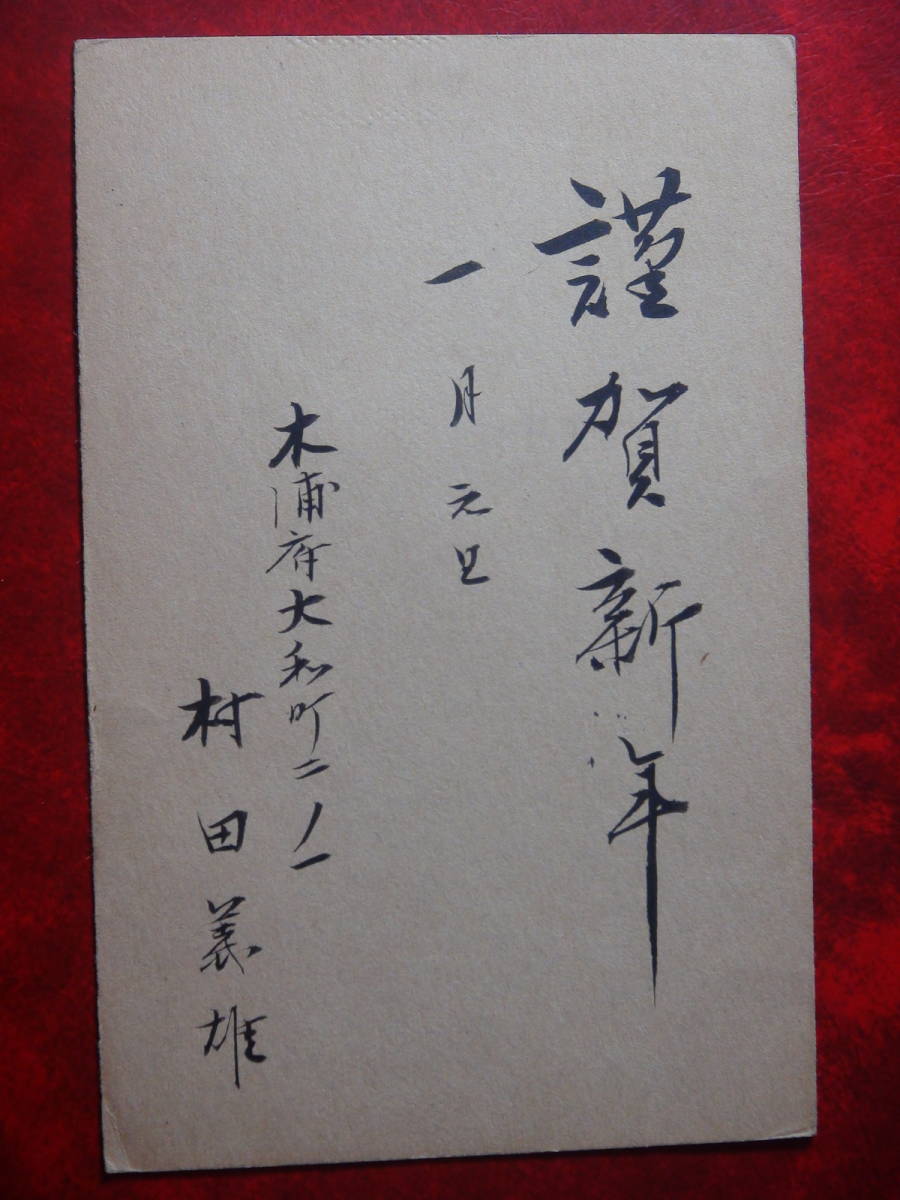 謹賀新年
一月元旦
木浦府大和町二ノ一
村田義雄